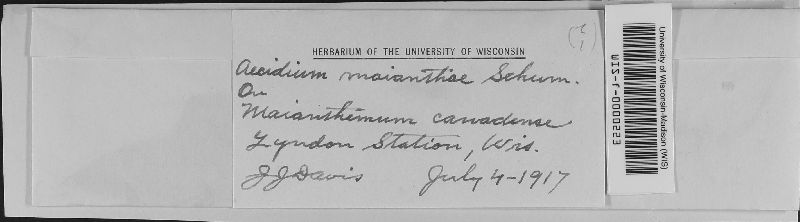 HERBARIUM OF THE UNIVERSITY OF WISCONSIN
Aecidium maianthae Schum.
On
Maianthemum canadense
Lyndon Station, Wis.
JJDavis July 4-1917
University of Wisconsin-Madison (WIS)
WIS-f-0000223